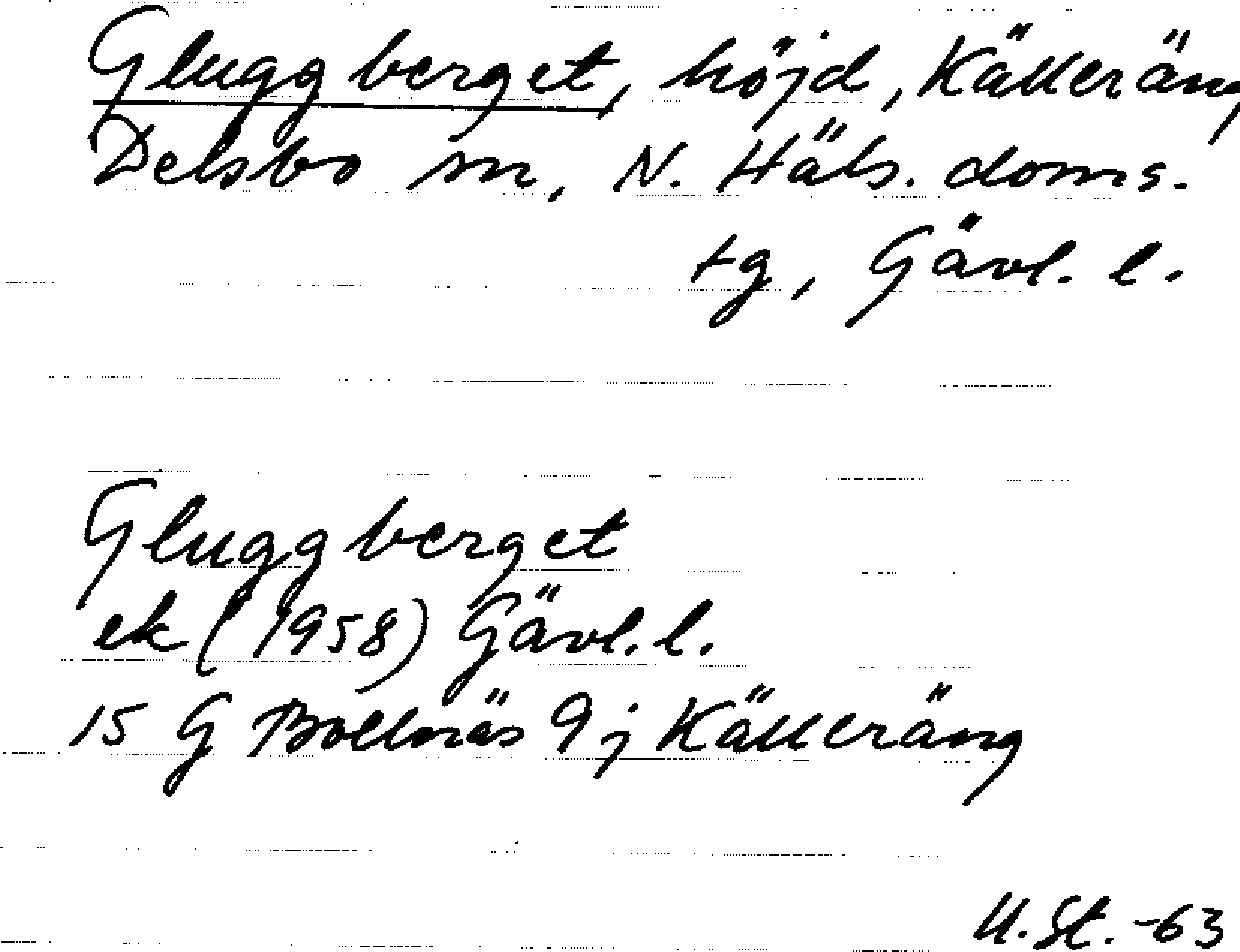 Gluggberget, höjd, Källeräng
Delsbo sn, N. Häls. doms.
tg, Gävl. l.
Gluggberget
ek (1958) Gävl. l.
15 G Bollnäs 9j Källeräng
U.St. -63